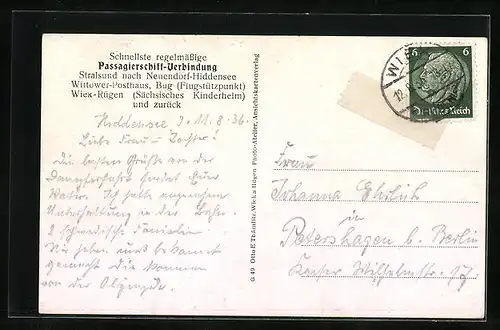 Schnellste regelmäßige
Passagierschiff-Verbindung
Stralsund nach Neuendorf-Hiddensee
Wittower-Posthaus, Bug (Flugstützpunkt)
Wiek-Rügen (Sächsisches Kinderheim)
und zurück
Hiddensee 11.8.36.
Liebe Frau Tochter!
Die besten Grüße von der
Dampferfahrt sendet Euer
Vater. Ich hatte angenehme
Unterhaltung in der Bahn.
2 schwedische Familien.
Wir haben uns bekannt
gemacht die kommen
von der Olympiade.
G 49 Otto E Thämlitz, Wiek a Rügen Photo-Atelier, Ansichtskartenverlag
6 6
Deutsches Reich
WIEK
Frau
Johanna Ehrlich
in
Petershagen b. Berlin
Kaiser Wilhelmstr.